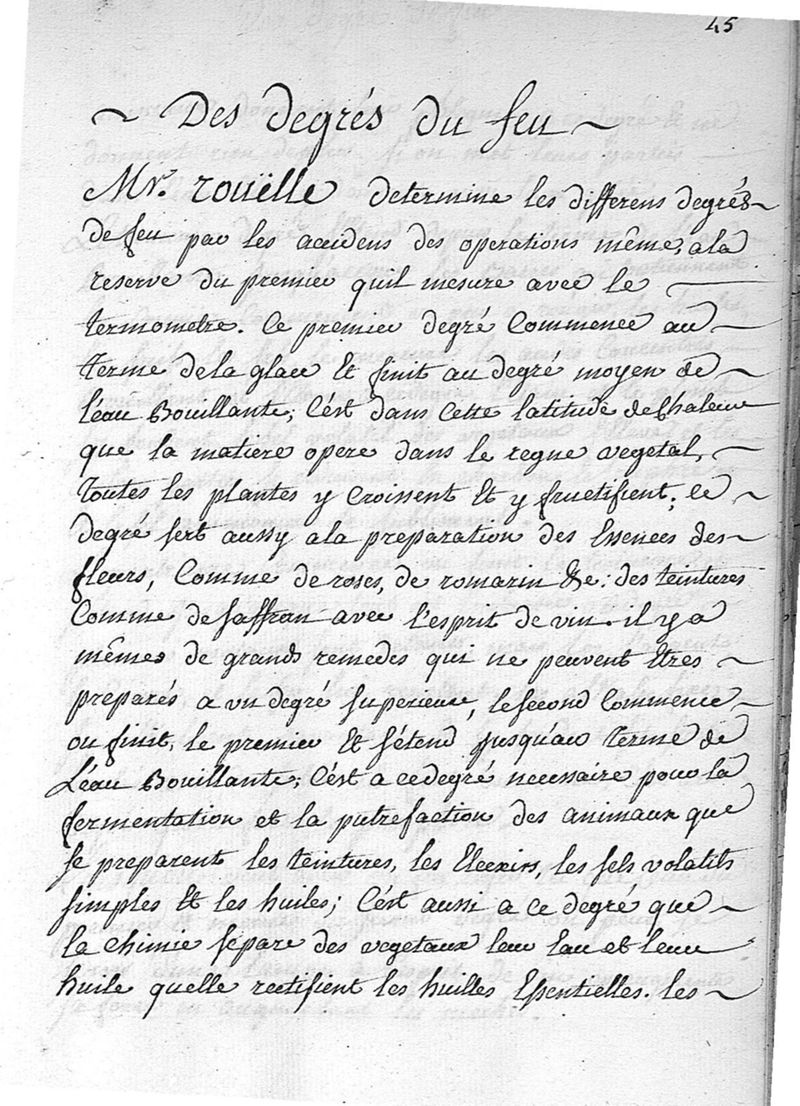 45
~ Des degrés du feu ~
Mr. rouëlle determine les differens degrés
de feu par les accidens des operations même, a la
reserve du premier quil mesure avec le
termometre. Ce premier degré Commence au
terme de la glace Et finit au degré moyen de
l'eau Bouillante; C'est dans Cette latitude de Chaleur
que la matiere opere dans le regne vegetal,
toutes les plantes y Croissent Et y fructifient; ce
degré sert aussy a la preparation des Essences des
fleurs, Comme de roses, de romarin &c: des teintures
Comme de saffran avec l'esprit de vin. il y a
mêmes de grands remedes qui ne peuvent Etres
preparés a un degré superieur, le second Commence
ou finit, le premier Et s'étend jusqu'au terme de
L'eau Bouillante; C'est a ce degré necessaire pour la
fermentation et la putrefaction des animaux que
se preparent les teintures, les Elexirs, les sels volatils
simples Et les huiles; C'est aussi a ce degré que
la chimie separe des vegetaux leur Eau et leur
huile quelle rectifient les huilles Essentielles. les